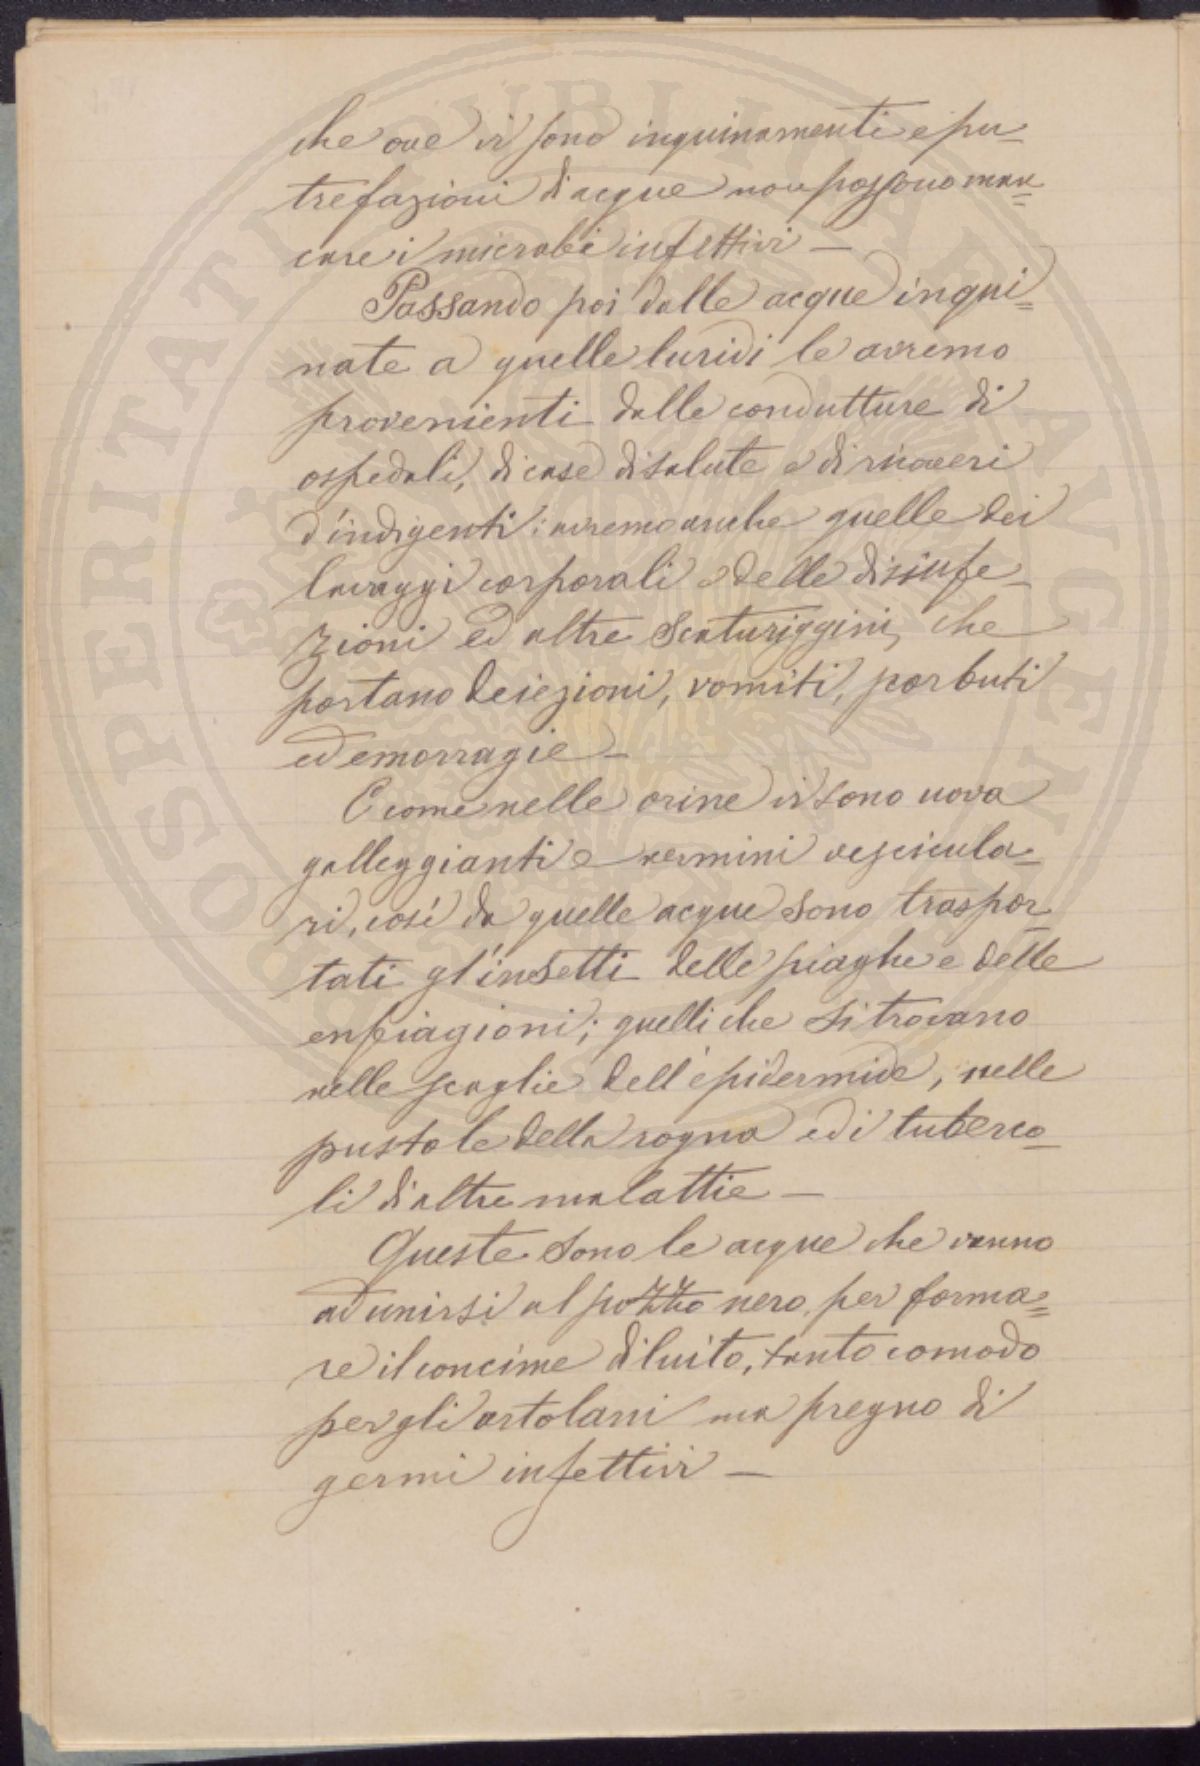 che ove vi sono inquinamenti e pu-
trefazioni di acque non possono man=
care i microbi infettivi —
Passando poi dalle acque inqui=
nate a quelle luridi le avremo
provenienti dalle condutture di
ospedali, di case di salute e di ricoveri
d'indigenti; avremo anche quelle dei
lavaggi corporali e delle disinfe-
zioni ed altre scaturiggini, che
portano deiezioni, vomiti, parbuti
ed emorragie —
E come nelle orine vi sono uova
galleggianti e vermini vescicula=
ri, così da quelle acque sono traspor
tati gl'insetti delle piaghe e delle
enfiagioni; quelli che si trovano
nelle scaglie dell'epidermide, nelle
pustole della rogna ed i tuberco=
li di altre malattie —
Queste sono le acque che vanno
ad unirsi al pozzo nero per forma=
re il concime diluito, tanto comodo
per gli ortolani ma pregno di
germi infettivi —
OSPERITATI PUBLICAE AVGEN